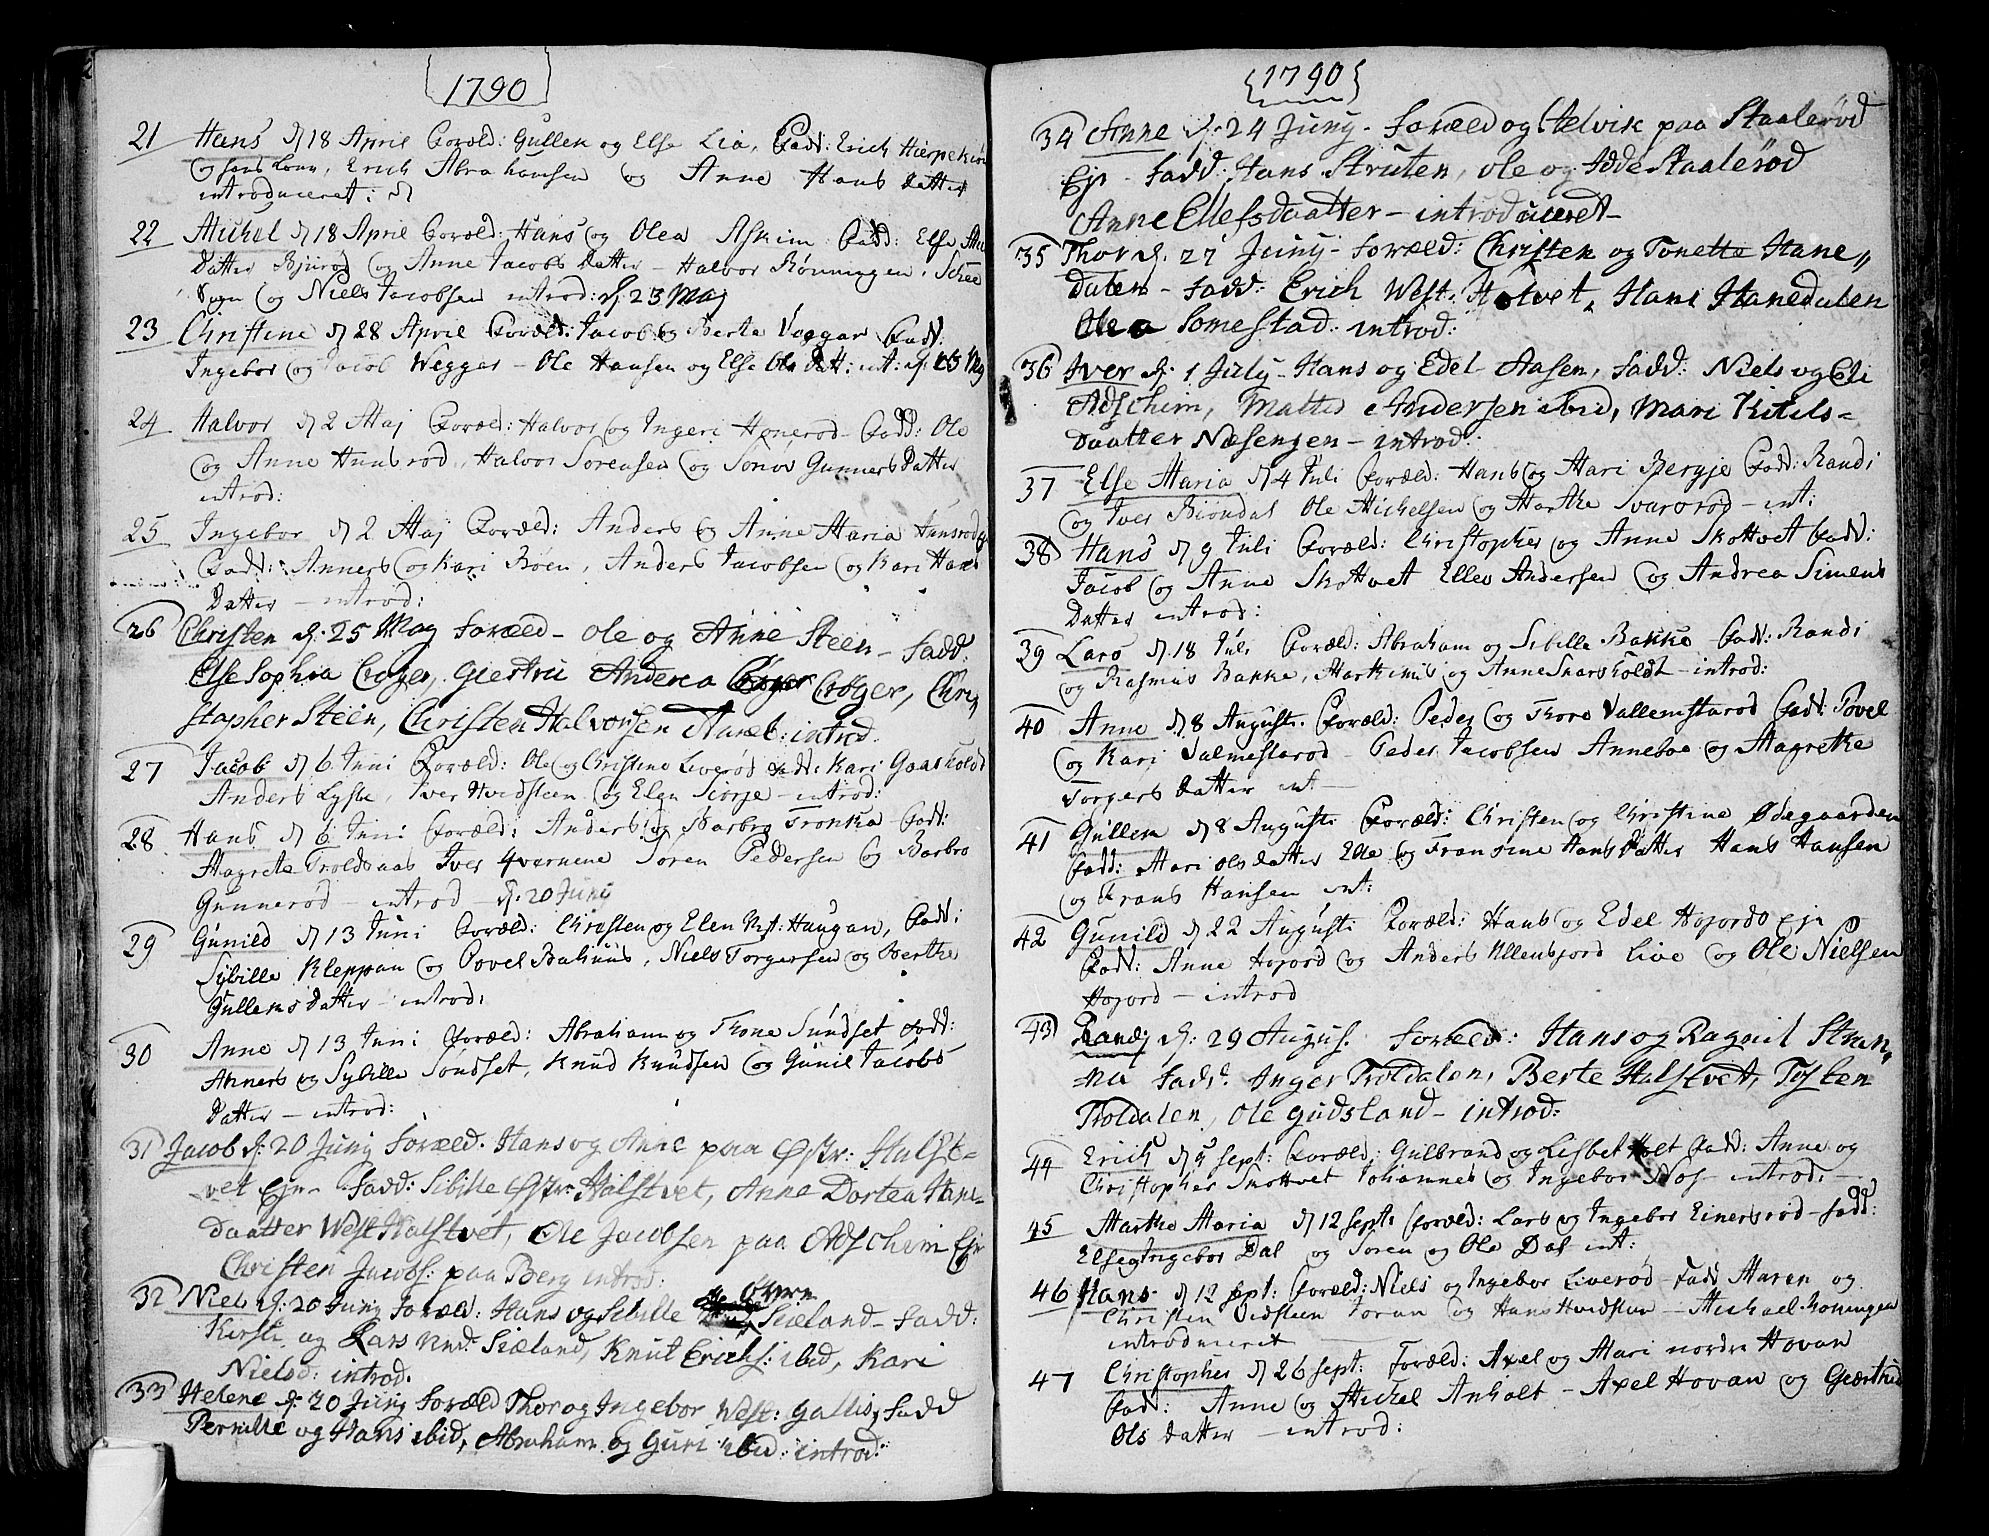 1790
21 Hans d 18 April Foræld: Gullek og Else Lia, Fadd: Erich Hierpekiøn
og hans Kone, Erich Abrahamsen og Anne Hans Datter
introduceret: d
22 Michel d 18 April Foræld: Hans og Olea Askim Fadd: Else
Datter Bjurød og Anne Jacobs Datter - Halvor Rønningen,
og Niels Jacobsen introd: d 23 Maj
23 Christine d 28 April Foræld: Jacob og Berte Veggar Fadd:
Ingebor og Jacob Wegger - Ole Hansen og Else Ols Datt: int: d: 23 Maj
24 Halvor d 2 Maj Foræld: Halvor og Ingeri Honerød Fadd: Ole
og Anne Hunsrod, Halvor Sorensen og Gunners Datter
introd:
25 Ingebor d 2 Maj Foræld: Anders og Anne Maria Hunsrod
Fadd: Anners og Kari Roen, Anders Jacobsen og Kari Hans
Datter - introd:
26 Christen d: 25 Maj Foræld - Ole og Anne Steen - Fadd:
Else Sophia Crøger, Giestru Anderea Crøger, Chri
stopher Steen, Christen Halvorsen introd.
27 Jacob d 6 Juni Foræld: Ole og Christine Liverød Fadd: Kari Gaasholdt
Anders Lysbe, Iver Hvidsteen og Elen Siorje - introd:
28 Hans d 6 Juni Foræld: Anders og Barbro Tronka Fadd:
Magrete Troldsaas Iver Qvernene Soren Pedersen og Barbro
Gunnerød - introd - d: 20 Juny
29 Gunild d 13 Juni Foræld: Christen og Elen Haugan, Fadd:
Sybille Kleppan og Povel Bahuus, Niels Torgersen og Berthe
Gullens Datter - introd:
30 Anne d 13 Juni Foræld: Abraham og Thone Sundset Fadd:
Anners og Sybille Sundset, Knud Knudsen og Gunil Jacobs
Datter - introd:
31 Jacob d: 20 Juny Foræld. Hans og Anne paa Østr: Halst=
vet Eje - Fadd: Sibille Østr: Halstvet, Anne Dortea Hans=
Daatter West Halstvet, Ole Jacobsen paa Adschim Eje
Christen Jacobs: paa Berg introd:
32 Niels d: 20 Juny Foræld: Hans og Sibille Øvre Siæland - Fadd:
Kirsti og Lars Siæland, Knut Erichs: ibid, Kari
Nielsd: introd.
33 Helene d: 20 Juny Foræld Thor og Ingebor West: Gallis, Fadd
Pernille og Hans ibid, Abraham og Guri ibid: introd:
1790
34 Anne d: 24 Juny - Foræld og Helvik paa Staalerød
Eje - Fadd: Hans Struten, Ole og Adde Staalerød
Anne Ellefsdaatter - introduceret -
35 Thor d. 27 Juny - Foræld: Christen og Tonette Hane„
dalen - Fadd: Erich West: Holvet, Hans Hanedalen
Olea Somestad: introd:
36 Iver d: 1 July - Hans og Edel Aasen, Fadd: Niels og Eli
Adschim, Mattis Andersen ibid, Mari Kitils=
daatter Næsengen - introd:
37 Else Maria d 4 Juli Foræld: Hans og Mari Bergje Fadd: Randi
og Iver Biøndal Ole Michelsen og Marthe Svarorød - int:
38 Hans d 9 Juli Foræld: Christopher og Anne Skottvet Fadd:
Jacob og Anne Skottvet Ellev Andersen og Andrea Simens
Datter introd:
39 Lars d 18 Juli Foræld: Abraham og Sibille Bakke Fadd: Randi
og Rasmus Bakke, og Anne Snarsholdt - introd:
40 Anne d 8 August: Foræld: Peder og Thore Vallemstarod Fadd: Povel
og Kari Valmestarod - Peder Jacobsen Anneboe og Magrethe
Torgers Datter int -
41 Gullem d 8 August: Foræld: Christen og Christine Ødegaarden
Fadd: Mari Olsdatter Elle og Fransine Hans Datter Hans Hansen
og Frans Hansen int:
42 Gunild d 22 August: Foræld: Hans og Edel Hojord Eje
Fadd: Anne Hojord og Anders Ullensfjord Live og Ole Nielsen
Hojord - introd
43 Randj d: 29 Augus. Foræld: Hans og Ragnil Stran„
na Fadd. Inger Troldalen, Berte Halstvet, Tosten
Troldalen, Ole Gudsland - introd:
44 Erich d 5 Sept: Foræld: Gulbrand og Lisbet Holt Fadd: Anne og
Christopher Skottvet Johannes og Ingebor Nos - introd: -
45 Marthe Maria d 12 Sept: Foræld: Lars og Ingebor Einersrod - Fadd:
Else og Ingebor Dal og Soren og Ole Dal int:
46 Hans d 12 Sept: Foræld: Niels og Ingebor Liverød - Fadd Maren og
Christen Vidsteen Joran og Hans Hvidsten - Michael Roningen
introduceret
47 Christopher d 26 Sept: Foræld: Axel og Mari nordre Hovan
Fadd: Anne og Michel Anholt - Axel Hovan og Giertrud
Ols Datter - introd: